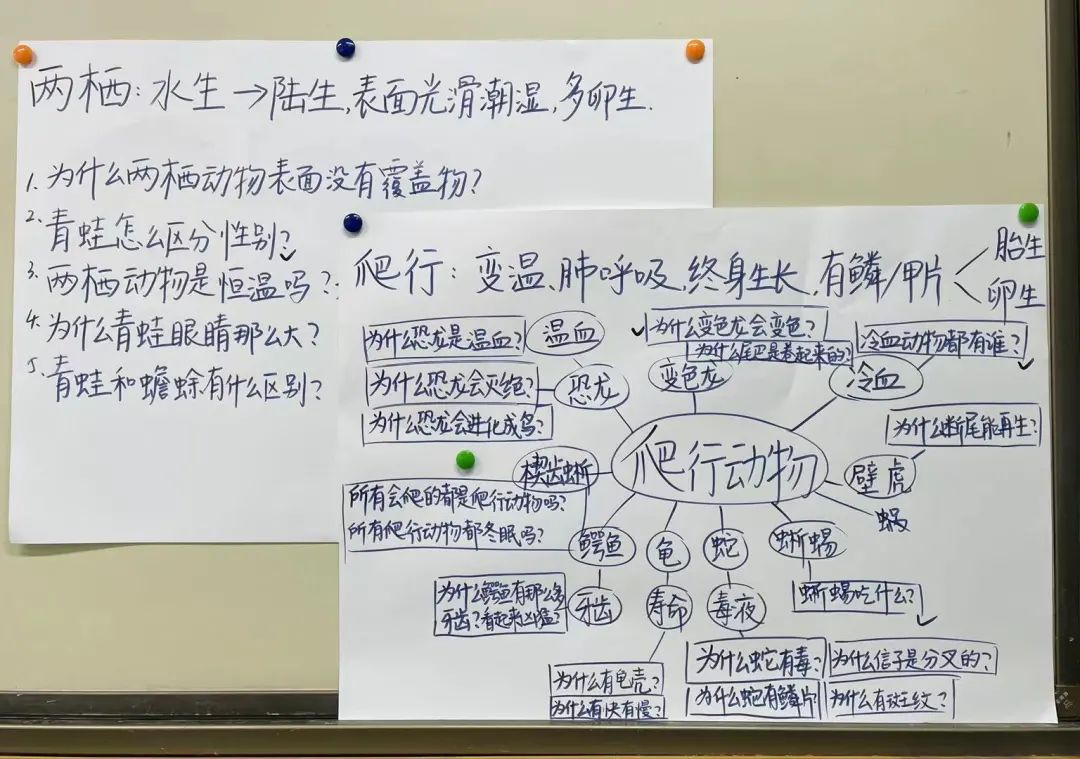 两栖：水生→陆生，表面光滑潮湿，多卵生．
1. 为什么两栖动物表面没有覆盖物？
2、青蛙怎么区分性别？
3、两栖动物是恒温吗？
4、为什么青蛙眼睛那么大？
5、青蛙和蟾蜍有什么区别？
爬行：变温、肺呼吸、终身生长，有鳞/甲片
胎生
卵生
为什么恐龙是温血？
温血
为什么恐龙会灭绝？
恐龙
为什么恐龙会进化成鸟？
为什么变色龙会变色？
为什么尾巴是卷起来的？
变色龙
冷血动物都有谁？
冷血
爬行动物
为什么断尾能再生？
壁虎
楔齿蜥
所有会爬的都是爬行动物吗？
所有爬行动物都冬眠吗？
鳄鱼
龟
蛇
蜥蜴
为什么鳄鱼有那么多
牙齿？看起来凶猛？
牙齿
寿命
毒夜
蜥蜴吃什么？
为什么有龟壳？
为什么有快有慢？
为什么蛇有毒？
为什么蛇有鳞片
为什么信子是分叉的？
为什么有斑纹？